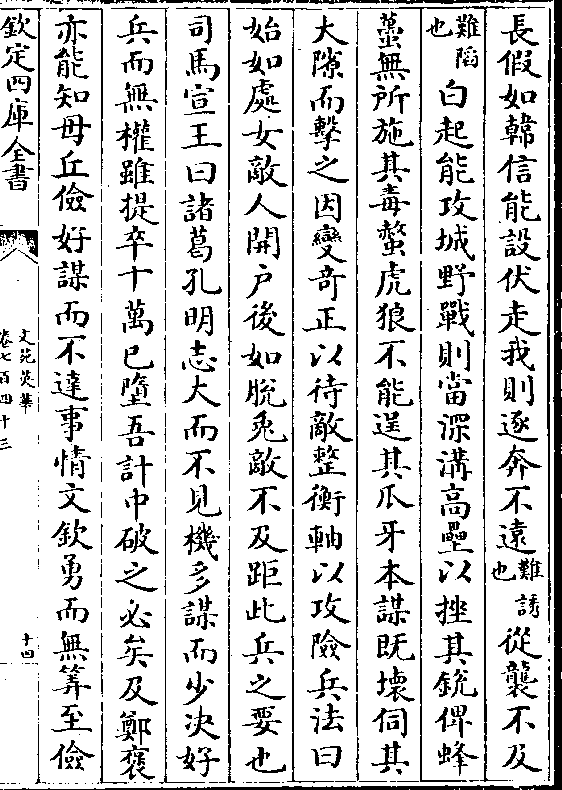 長假如韓信能設伏走我則逐奔不遠難誘也從襲不及
難䧟也白起能攻城野戰則當深溝高壘以挫其銳俾蜂
蠆無所施其毒螫虎狼不能逞其爪牙本謀既壞伺其
大隙而擊之因變竒正以待敵整衡軸以攻險兵法曰
始如處女敵人開户後如脱兎敵不及距此兵之要也
司馬宣王曰諸葛孔明志大而不見機多謀而少决好
兵而無權雖提卒十萬已墮吾計中破之必矣及鄭襃
亦能知毋丘儉好謀而不達事情文欽勇而無筭至儉
欽定四庫全書
文苑英華
卷七百四十三
十四